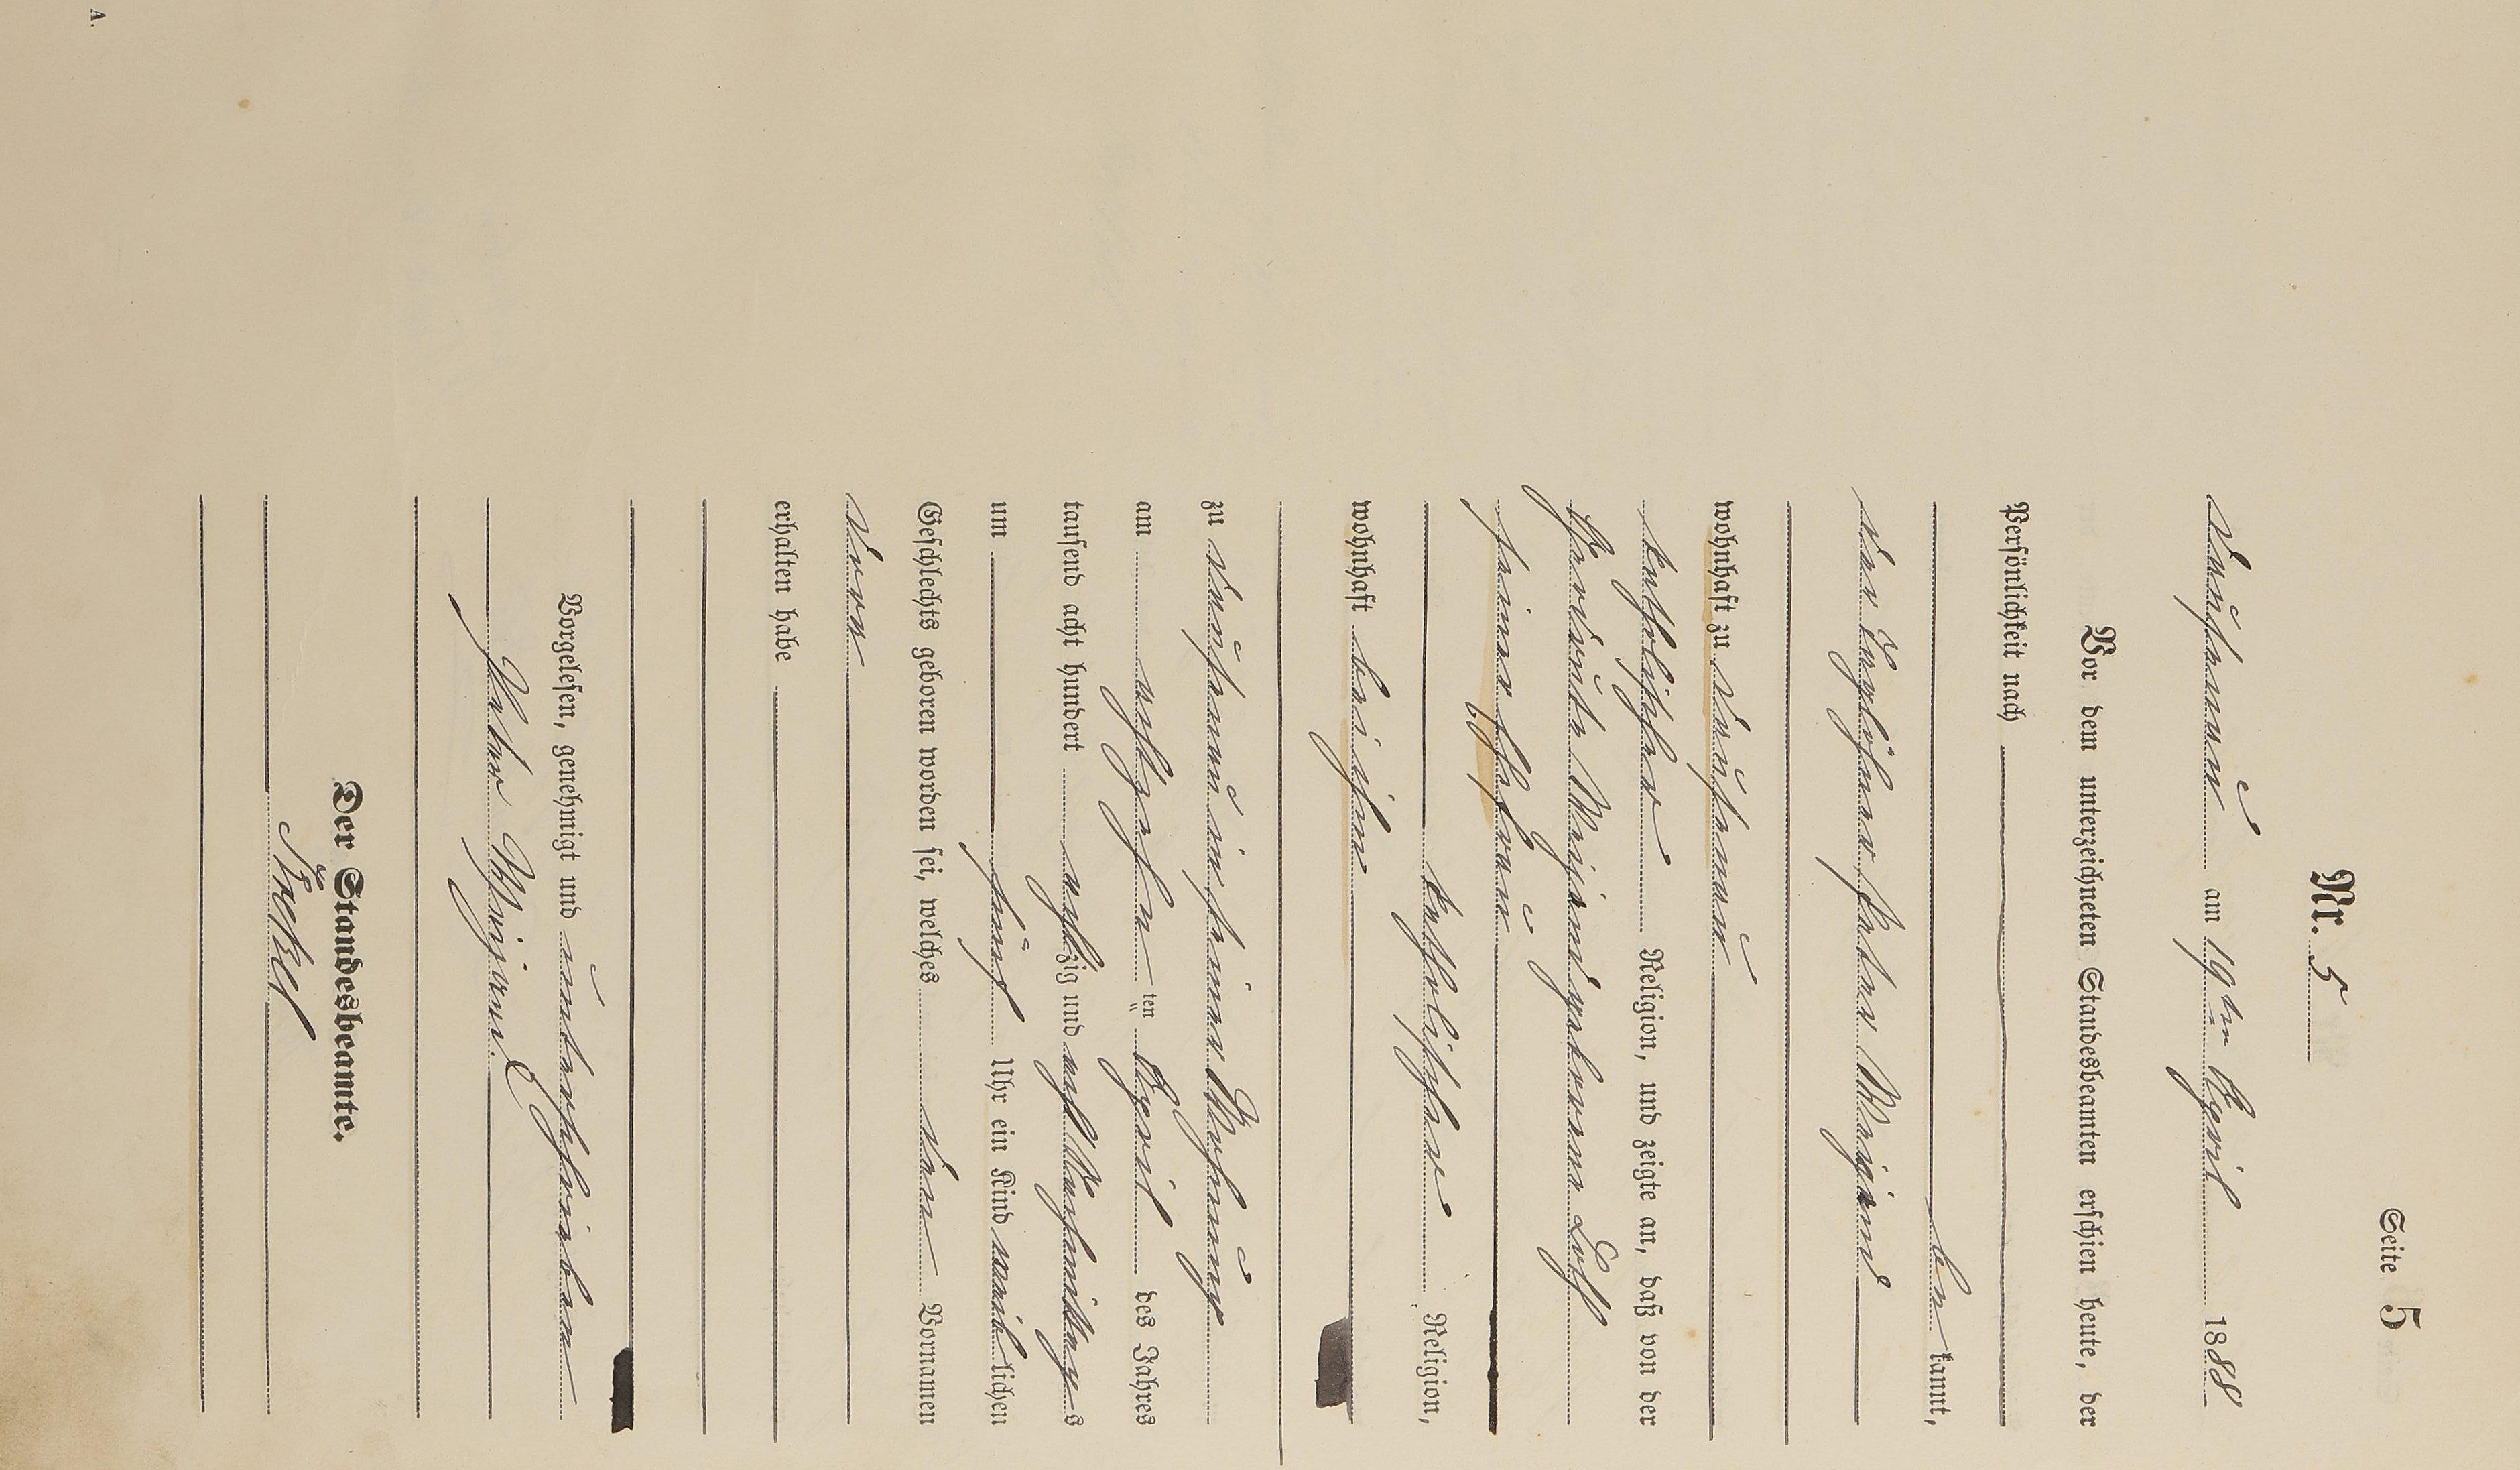 Seite 5
Nr. 5
am 19ten April 1888
Vor dem unterzeichneten Standesbeamten erschien heute, der
Persönlichkeit nach
be kannt,
der Taglöhner Peter Weigand
wohnhaft zu
katholischer Religion, und zeigte an, daß von der
Gertrude Weigand geborenen
seiner Ehefrau
katholischer Religion,
wohnhaft bei ihm
zu in seiner Wohnung
am achtzehnten ten April des Jahres
tausend acht hundert achtzig und acht Nachmittags
um fünf Uhr ein Kind weiblichen
Geschlechts geboren worden sei, welches den Vornamen
erhalten habe
Vorgelesen, genehmigt und unterschrieben
Peter Weigand
Der Standesbeamte.
A.